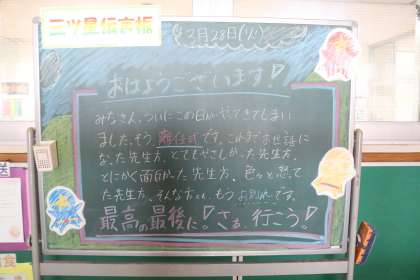 三ツ星伝言板
3月28日(火)
おはようございます!
みなさん、ついにこの日がやってきてしまい
ました。そう、離任式です。これまでお世話に
なった先生方、とてもやさしかった先生方、
とにかく面白かった先生方、色々と思って
た先生方、そんな方々と、もうお別れです。
最高の最後に!さぁ、行こう!